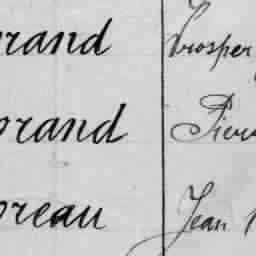 rand Prosper
orand Pierr
oreau Jean